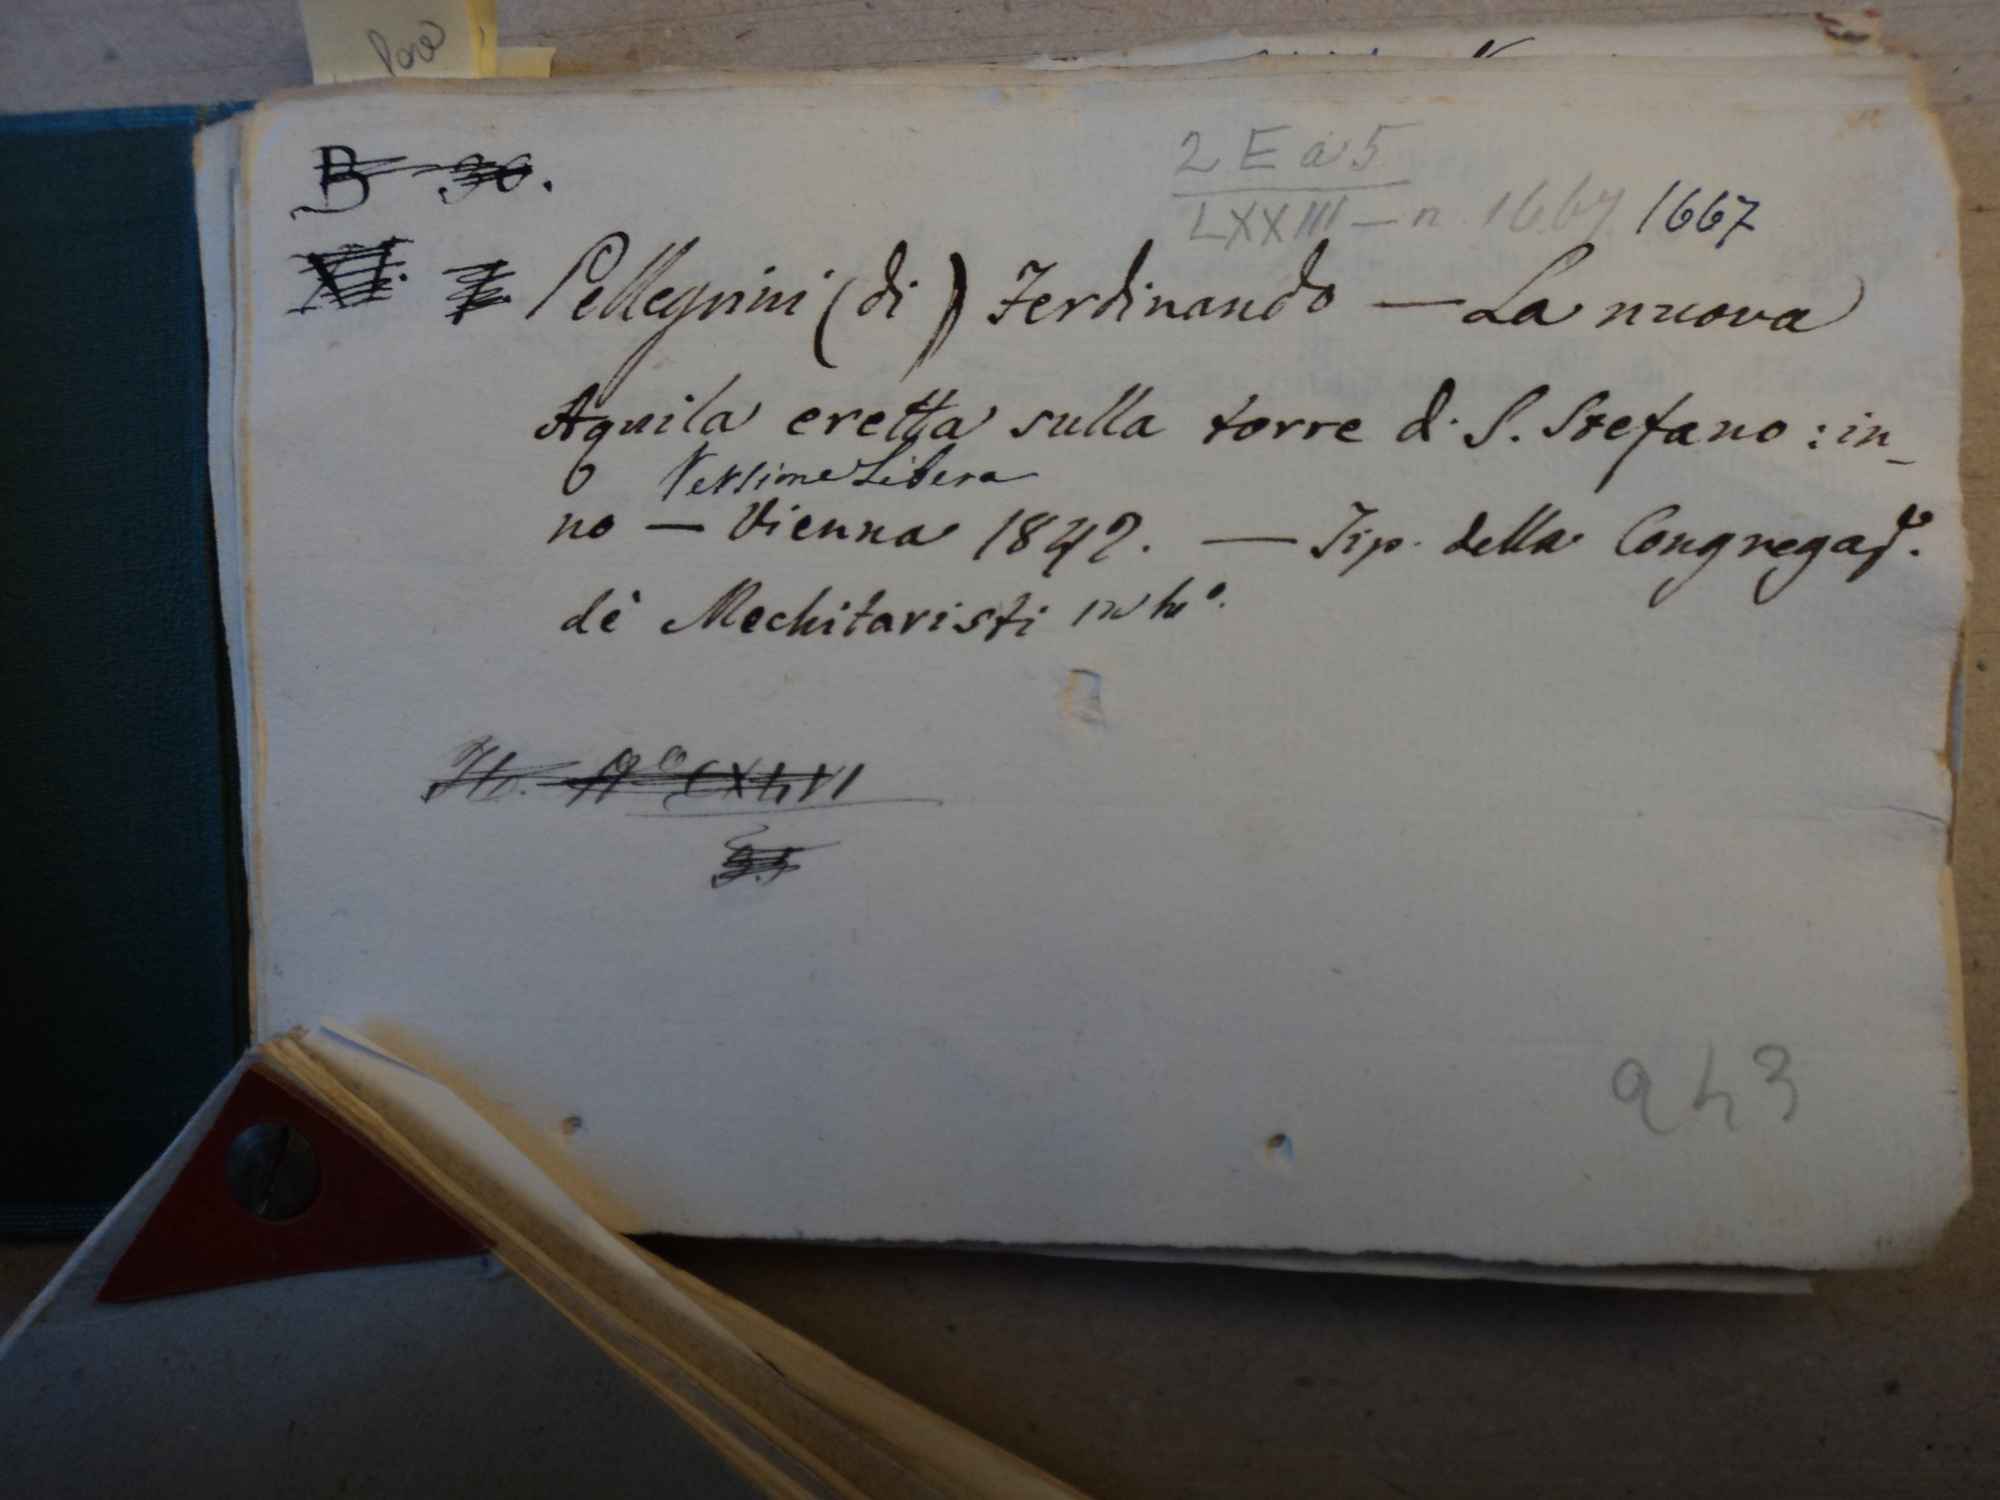 B 36.
2 E a 5
LXXIII — n. 1667 1667
XI. Pellegrini (di) Ferdinando — La nuova
Aquila eretta sulla torre di S. Stefano : in-
Versione Libera
no — Vienna 1842. — Tip. della Congregaz.e
dè Mechitaristi in 4º.
CXLVI
943